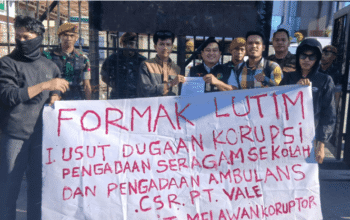 FORMAK LUTIM
1. USUT DUGAAN KORUPSI
PENGADAAN SERAGAM SEKOLAH
DAN PENGADAAN AMBULANS
.CSR. P.T. VALE
MELAWAN KORUPTOR